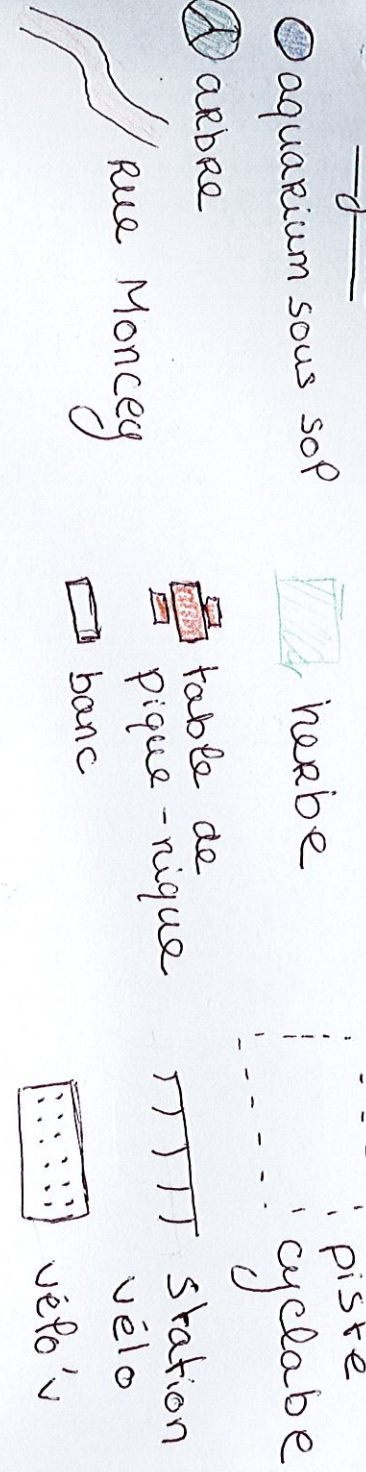 aquarium sous sol
arbre
Rue Moncey
herbe
table de
pique-nique
banc
piste
cyclabe
station
vélo
vélo'v